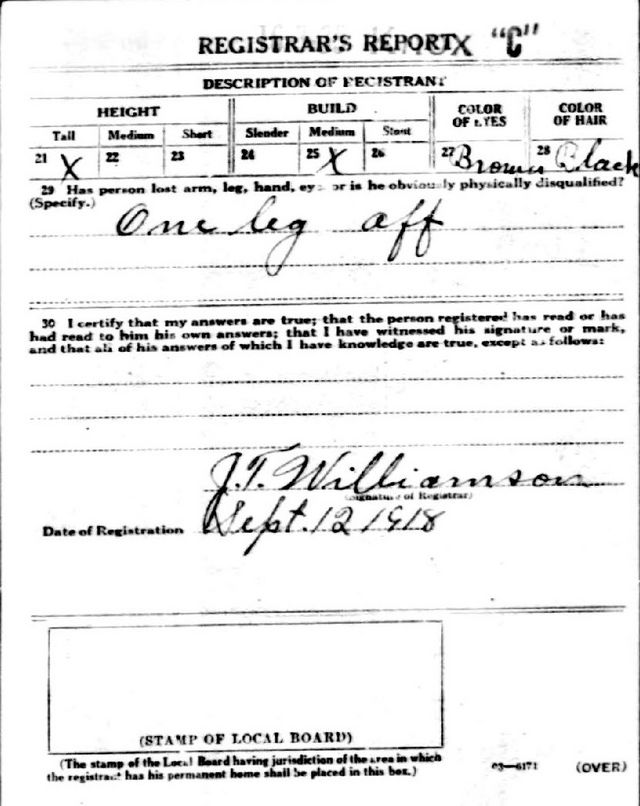 REGISTRAR'S REPORT "C"
DESCRIPTION OF REGISTRANT
HEIGHT BUILD COLOR OF EYES COLOR OF HAIR
Tall Medium Short Slender Medium Stout
21 X 22 23 24 25 X 26 27 Brown 28 Black
29 Has person lost arm, leg, hand, eye, or is he obviously physically disqualified?
(Specify.)
One leg off
30 I certify that my answers are true; that the person registered has read or has
had read to him his own answers; that I have witnessed his signature or mark,
and that all of his answers of which I have knowledge are true, except as follows:
J.T. Williamson
(Signature of Registrar)
Date of Registration Sept. 12 1918
(STAMP OF LOCAL BOARD)
(The stamp of the Local Board having jurisdiction of the area in which
the registrant has his permanent home shall be placed in this box.)
03—6171 (OVER)